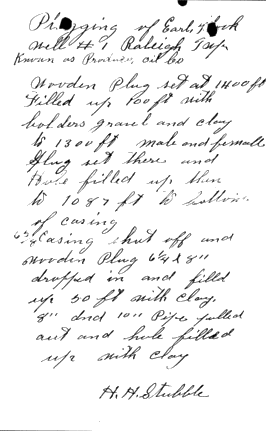 Plugging of Earl Cook
Well #1 Raleigh Twp
Known as Produce, oil Co
Wooden Plug set at 1400 ft
Filled up 100 ft with
bolders gravel and clay
to 1300 ft male and female
Plug set there and
Hole filled up then
to 1087 ft to bottom
of casing
6 5/8 Casing shut off and
wooden Plug 6 1/4 & 8"
dropped in and filled
up 50 ft with clay.
8" and 10" Pipe pulled
out and hole filled
up with clay
H. H. Stubble